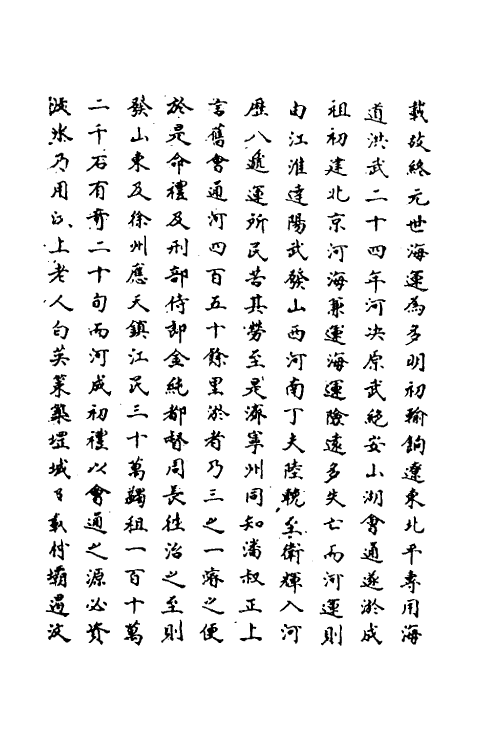 載故終元世海運為多明初輸餉遼東北平專用海
道洪武二十四年河決原武絕安山湖會通遂淤成
祖初建北京河海兼運海運險遠多失亡而河運則
由江淮達陽武發山西河南丁夫陸輓至衛輝入河
歷八遞運所民苦其勞至是濟寧州同知潘叔正上
言舊會通河四百五十餘里淤者乃三之一濬之便
於是命禮及刑部侍郎金純都督周長往治之至則
發山東及徐州應天鎮江民三十萬蠲租一百十萬
二千石有奇二十旬而河成初禮以會通之源必資
汶水乃用汶上老人白英策築堽城及戴村壩遏汶